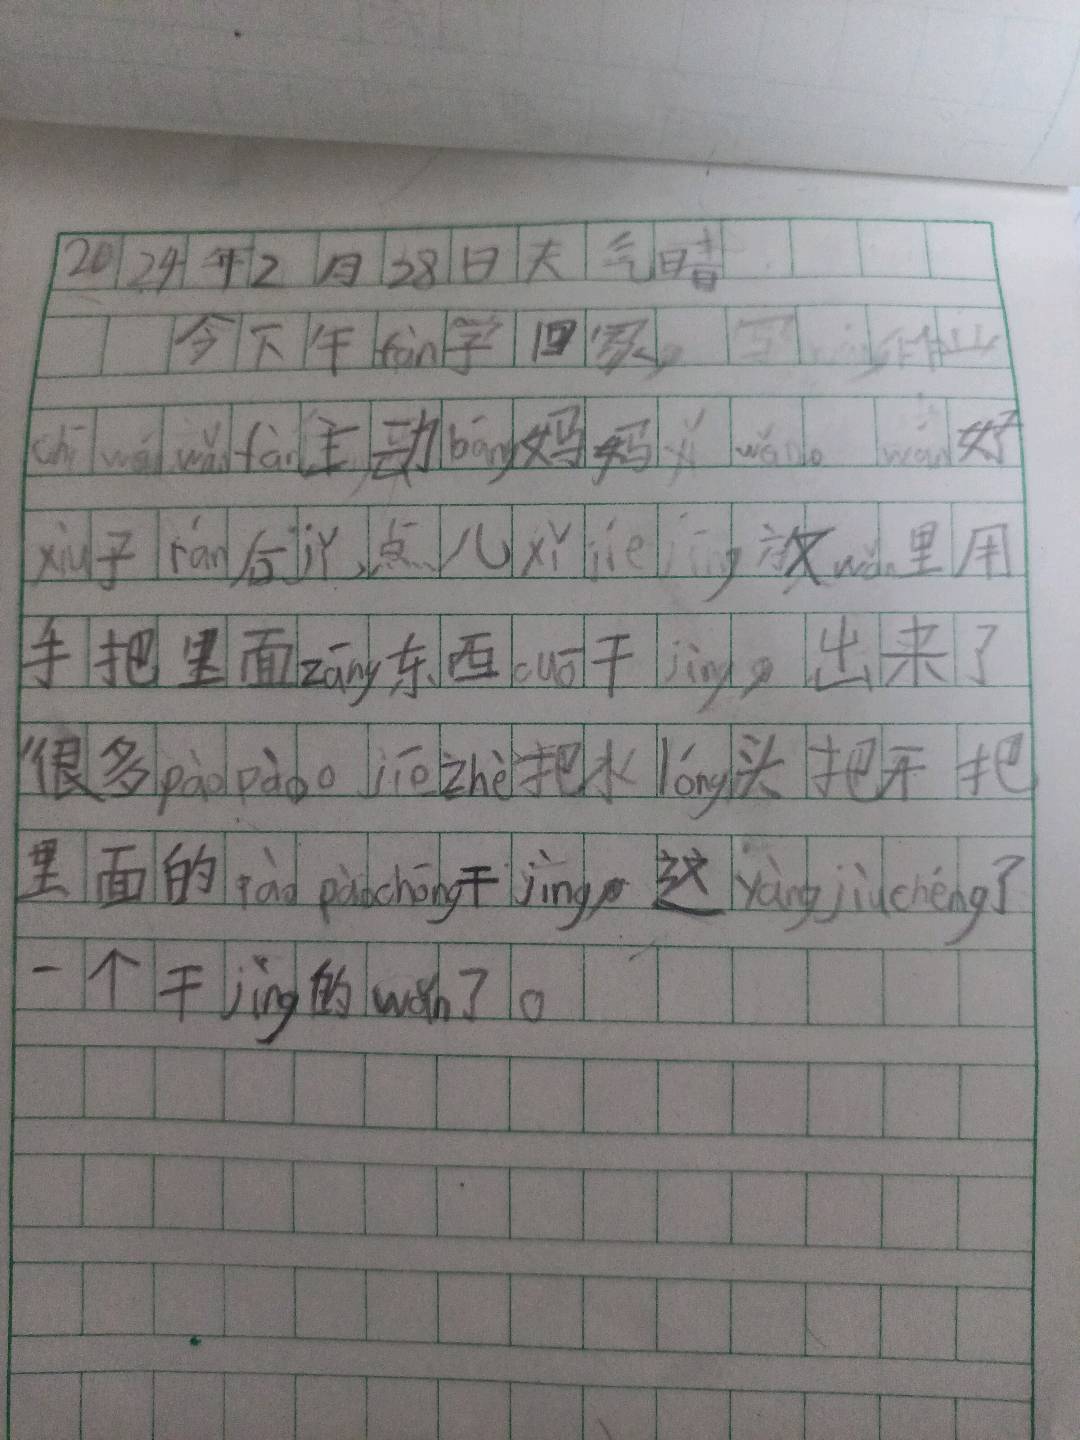 2024年2月28日天气晴
今下午fàn学回家，写 作业
chī wán wǎn fàn主动bāng妈妈xǐ wǎn。wǎn好
xiù子rán后jǐ点儿xǐ jié jīng放wǎn里用
手把里面zāng东西cuō干jìng，出来了
很多pàopào。jiēzhè把水lóng头把开把
里面的pàopàochōng干jìng，这yàngjiùchéng了
一个干jìng的wǎn了。